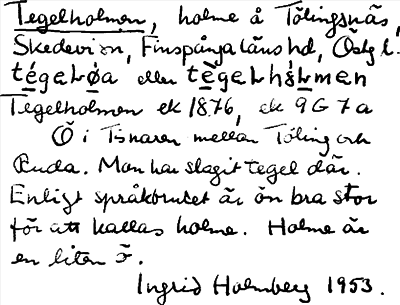 Tegelholmen, holme å Tölingsnäs,
Skedevi sn, Finspånga läns hd, Östg l.
tégeLøa eller tègeLhåLmen
Tegelholmen ek 1876, ek 9G 7a
Ö i Tisnaren mellan Töling och
Ända. Man har slagit tegel där.
Enligt språkbruket är ön bra stor
för att kallas holme. Holme är
en liten ö.
Ingrid Holmberg 1953.